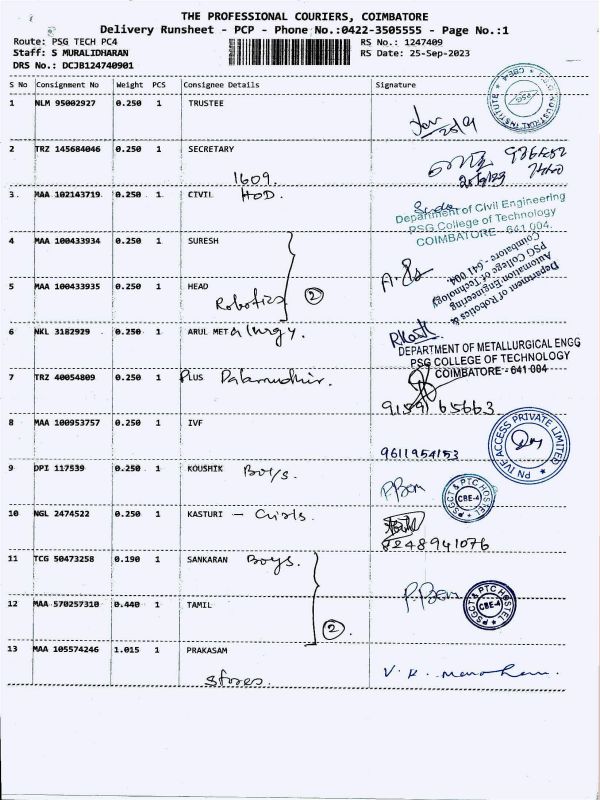 THE PROFESSIONAL COURIERS, COIMBATORE
Delivery Runsheet - PCP - Phone No.:0422-3505555 - Page No.:1
Route: PSG TECH PC4 RS No.: 1247409
Staff: S MURALIDHARAN RS Date: 25-Sep-2023
DRS No.: DCJB124740901
S No Consignment No Weight PCS Consignee Details Signature
1 NLM 95002927 0.250 1 TRUSTEE
25/9
2 TRZ 145684046 0.250 1 SECRETARY
1609.
3. MAA 102143719 0.250 1 CIVIL HOD.
Department of Civil Engineering
PSG College of Technology
COIMBATORE - 641 004.
4 MAA 100433934 0.250 1 SURESH
5 MAA 100433935 0.250 1 HEAD
Robotics 2
Department of Robotics &
Automation Engineering
PSG College of Technology
Coimbatore - 641 004.
6 NKL 3182929 0.250 1 ARUL METalurgy.
DEPARTMENT OF METALLURGICAL ENGG
PSG COLLEGE OF TECHNOLOGY
COIMBATORE - 641 004
7 TRZ 40054809 0.250 1 PLUS
9159165663
8 MAA 100953757 0.250 1 IVF
9611954153
PN IVF ACCESS PRIVATE LIMITED
9 DPI 117539 0.250 1 KOUSHIK Boys.
PSGCT & PTC HOSTEL
CBE-4
10 NGL 2474522 0.250 1 KASTURI -
8248941076
11 TCG 50473258 0.190 1 SANKARAN Boys.
12 MAA 570257310 0.440 1 TAMIL
2.
PSGCT & PTC HOSTEL
CBE-4
13 MAA 105574246 1.015 1 PRAKASAM
stores.
V. K. Manoharan.